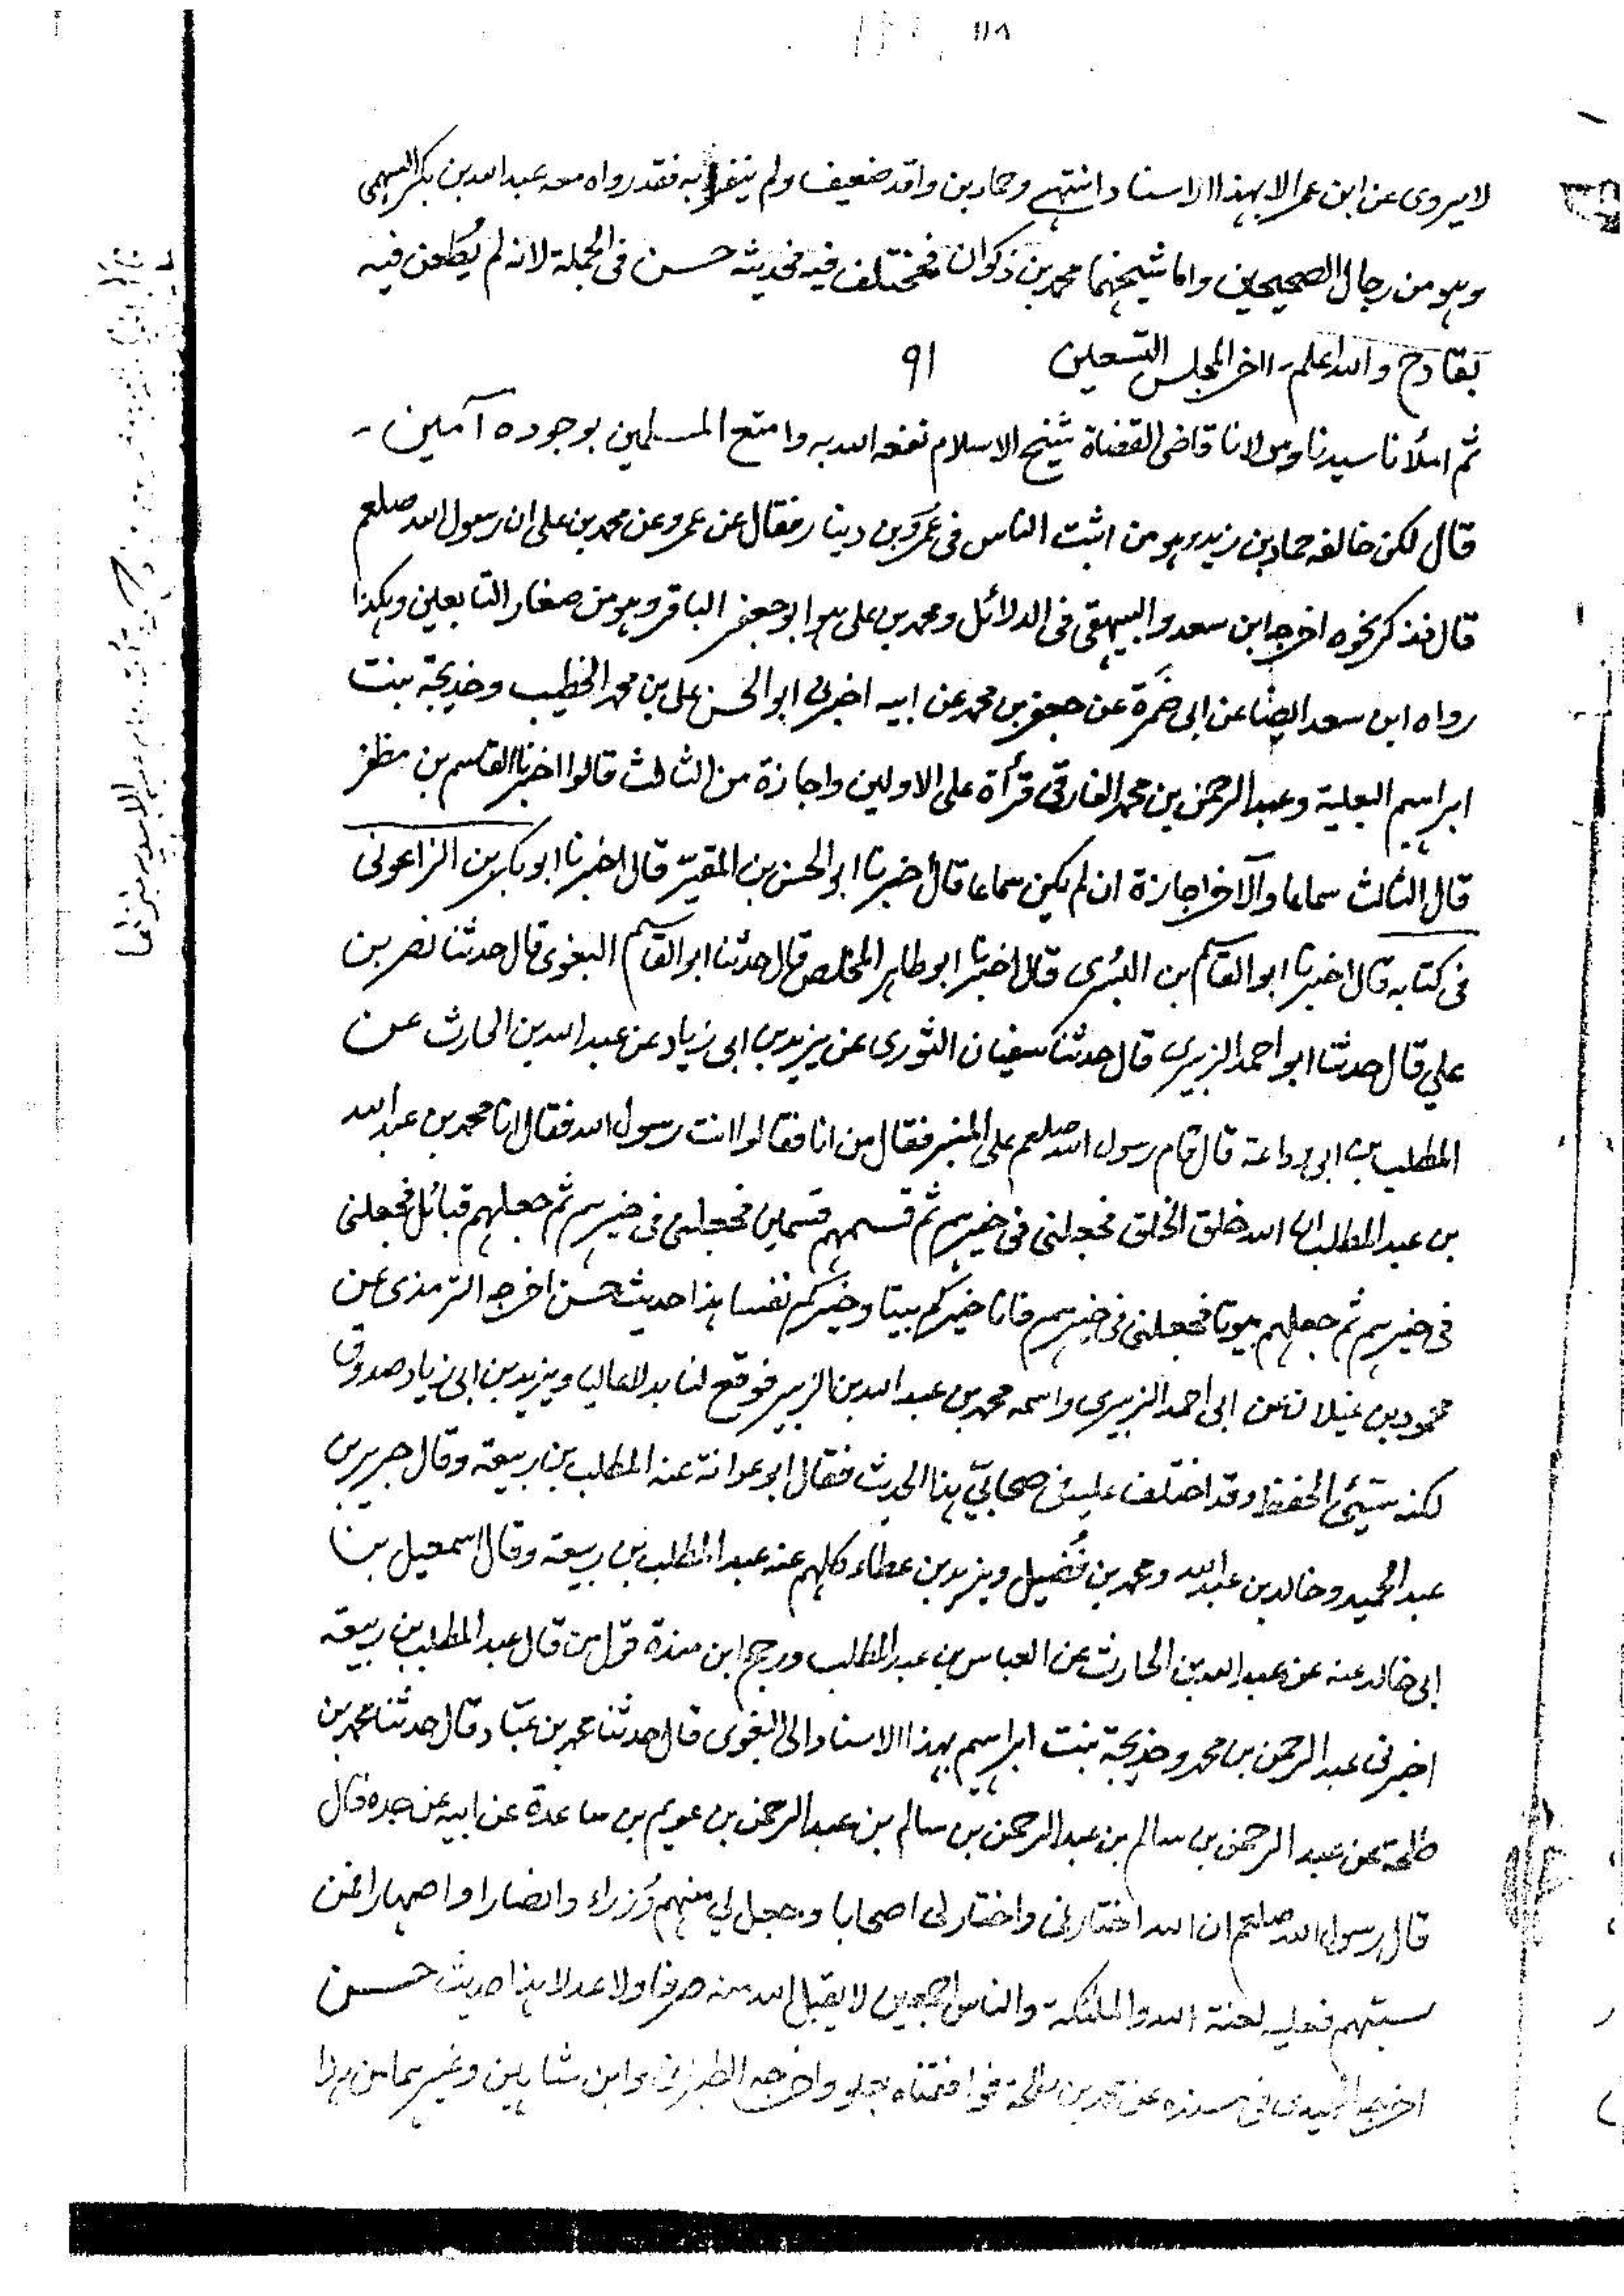 ١١٨
لا يروى عن ابن عمر الا بهذا الاسناد انتهى وحماد بن واقد ضعيف ولم ينفرد به فقد رواه معه عبد الله بن بكر السهمى
وهو من رجال الصحيحين واما شيخهما محمد بن ذكوان فمختلف فيه فحديثه حسن فى الجملة لانه لم يُطعن فيه
بقادح والله اعلم - اخر المجلس التسعين ٩١
ثم املأنا سيدنا ومولانا قاضى القضاة شيخ الاسلام نفعه الله به وامتع المسلمين بوجوده آمين -
قال لكن خالفه حماد بن زيد وهو من اثبت الناس فى عمرو بن دينار فقال عن عمرو عن محمد بن على ان رسول الله صلعم
قال فذكر نحوه اخرجه ابن سعد والبيهقى فى الدلائل ومحمد بن على هو ابو جعفر الباقر وهو من صغار التابعين وهكذا
رواه ابن سعد ايضا عن ابى ضمرة عن جعفر بن محمد عن ابيه اخبرنى ابو الحسن على بن محمد الخطيب وخديجة بنت
ابراهيم البعلية وعبد الرحمن بن محمد الفارقى قرأة على الاولين واجازة من الثالث قالوا اخبرنا القاسم بن مظفر
قال الثالث سماعا والآخر اجازة ان لم يكن سماعا قال اخبرنا ابو الحسن بن المقير قال اخبرنا ابو بكر بن الزاعونى
فى كتابه قال اخبرنا ابو القاسم بن البُسرى قال اخبرنا ابو طاهر المخلص قال حدثنا ابو القاسم البغوى قال حدثنا نصر بن
على قال حدثنا ابو احمد الزبيرى قال حدثنا سفيان الثورى عن يزيد بن ابى زياد عن عبد الله بن الحارث عن
المطلب بن ابى وداعة قال قام رسول الله صلعم على المنبر فقال من انا فقالوا انت رسول الله فقال انا محمد بن عبد الله
بن عبد المطلب ان الله خلق الخلق فجعلنى فى خيرهم ثم قسمهم قسمين فجعلنى فى خيرهم ثم جعلهم قبائل فجعلنى
فى خيرهم ثم جعلهم بيوتا فجعلنى فى خيرهم فانا خيركم بيتا وخيركم نفسا هذا حديث حسن اخرجه الترمذى عن
محمود بن غيلان عن ابى احمد الزبيرى واسمه محمد بن عبد الله بن الزبير فوقع لنا بدلا عاليا ويزيد بن ابى زياد صدوق
لكنه سيئ الحفظ وقد اختلف عليه فى صحابىّ هذا الحديث فقال ابو عوانة عنه المطلب بن ربيعة وقال جرير بن
عبد الحميد وخالد بن عبد الله ومحمد بن فُضيل ويزيد بن عطاء كلهم عنه عبد المطلب بن ربيعة وقال اسمعيل بن
ابى خالد عنه عن عبد الله بن الحارث عن العباس بن عبد المطلب ورجح ابن مندة قول من قال عبد المطلب بن ربيعة
اخبرنى عبد الرحمن بن محمد وخديجة بنت ابراهيم بهذا الاسناد الى البغوى قال حدثنا محمد بن عبّاد قال حدثنا محمد بن
طلحة عن عبد الرحمن بن سالم بن عبد الرحمن بن سالم بن عبد الرحمن بن عويم بن ساعدة عن ابيه عن جده قال
قال رسول الله صلعم ان الله اختارنى واختار لى اصحابا وجعل لي منهم وُزراء وانصارا واصهارا فمن
سبّهم فعليه لعنة الله والملئكة والناس اجمعين لا يقبل الله منه صرفا ولا عدلا هذا حديث حسن
اخرجه الحميدى فى مسنده عن محمد بن طلحة فوافقناه بعلو واخرجه الطبرانى وابن شاهين وغيرهما من هذا